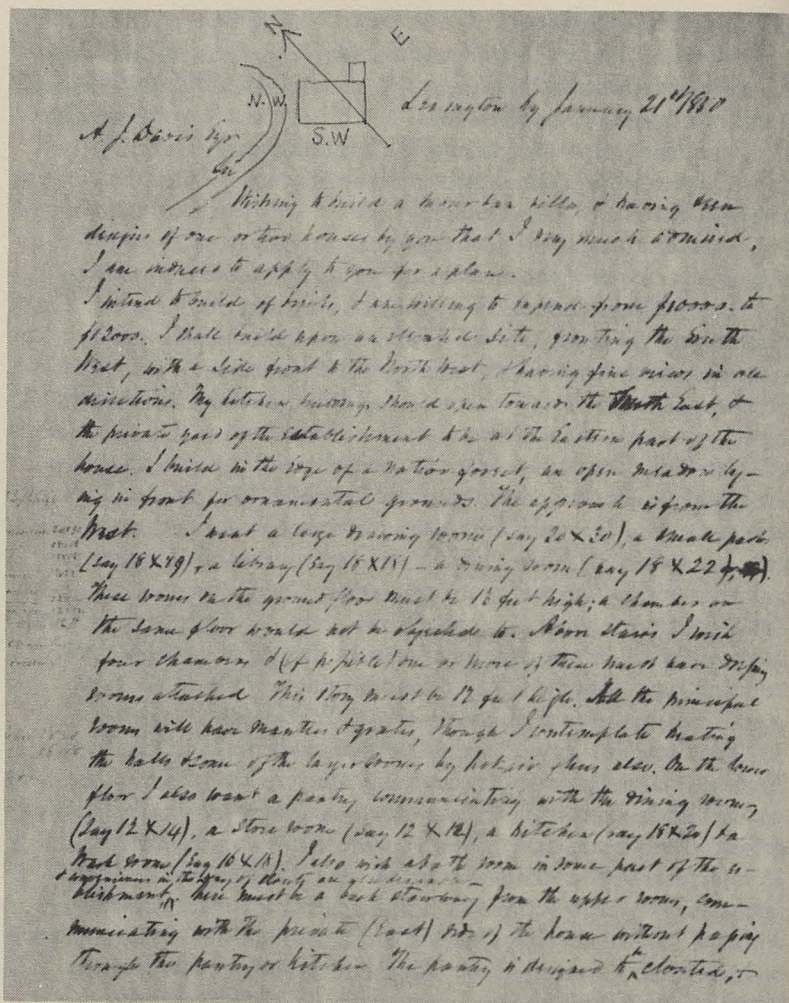 N E
N.W.
S.W
Lexington Ky January 21st 1850
A. J. Davis Esqr
Wishing to build a suburban villa, & having seen
designs of one or two houses by you that I very much admired,
I am induced to apply to you for a plan.
I intend to build of brick, & am willing to expend from $10000. to
$12000. I shall build upon an elevated site, fronting the South
West, with a side front to the North West, & having fine views in all
directions. My kitchen buildings should open towards the North East, &
the private yard of the establishment to be at the Eastern part of the
house. I build in the edge of a native forest, an open meadow ly-
ing in front for ornamental grounds. The approach is from the
West. I want a large drawing room (say 20 X 30), a small parlor
(say 18 X 19), a library (say 18 X 18) – a dining room (say 18 X 22).
These rooms on the ground floor must be feet high; a chamber on
the same floor would not be objected to. Above stairs I wish
four chambers & (if possible) one or more of them must have dressing
rooms attached This story must be 12 feet high. All the principal
rooms will have mantles & grates, though I contemplate heating
the halls & some of the larger rooms by hot air flues also. On the lower
floor I also want a pantry communicating with the dining room,
(say 12 X 14), a store room (say 12 X 12), a kitchen (say 18 X 20) & a
wash room (say 16 X 18). I also wish a bath room in some part of the es-
& conveniences in the way of closets are also
tablishment, there must be a back stairway from the upper rooms, com-
municating with the private (East) side of the house without passing
through the pantry or kitchen. The pantry is designed to be closeted, &